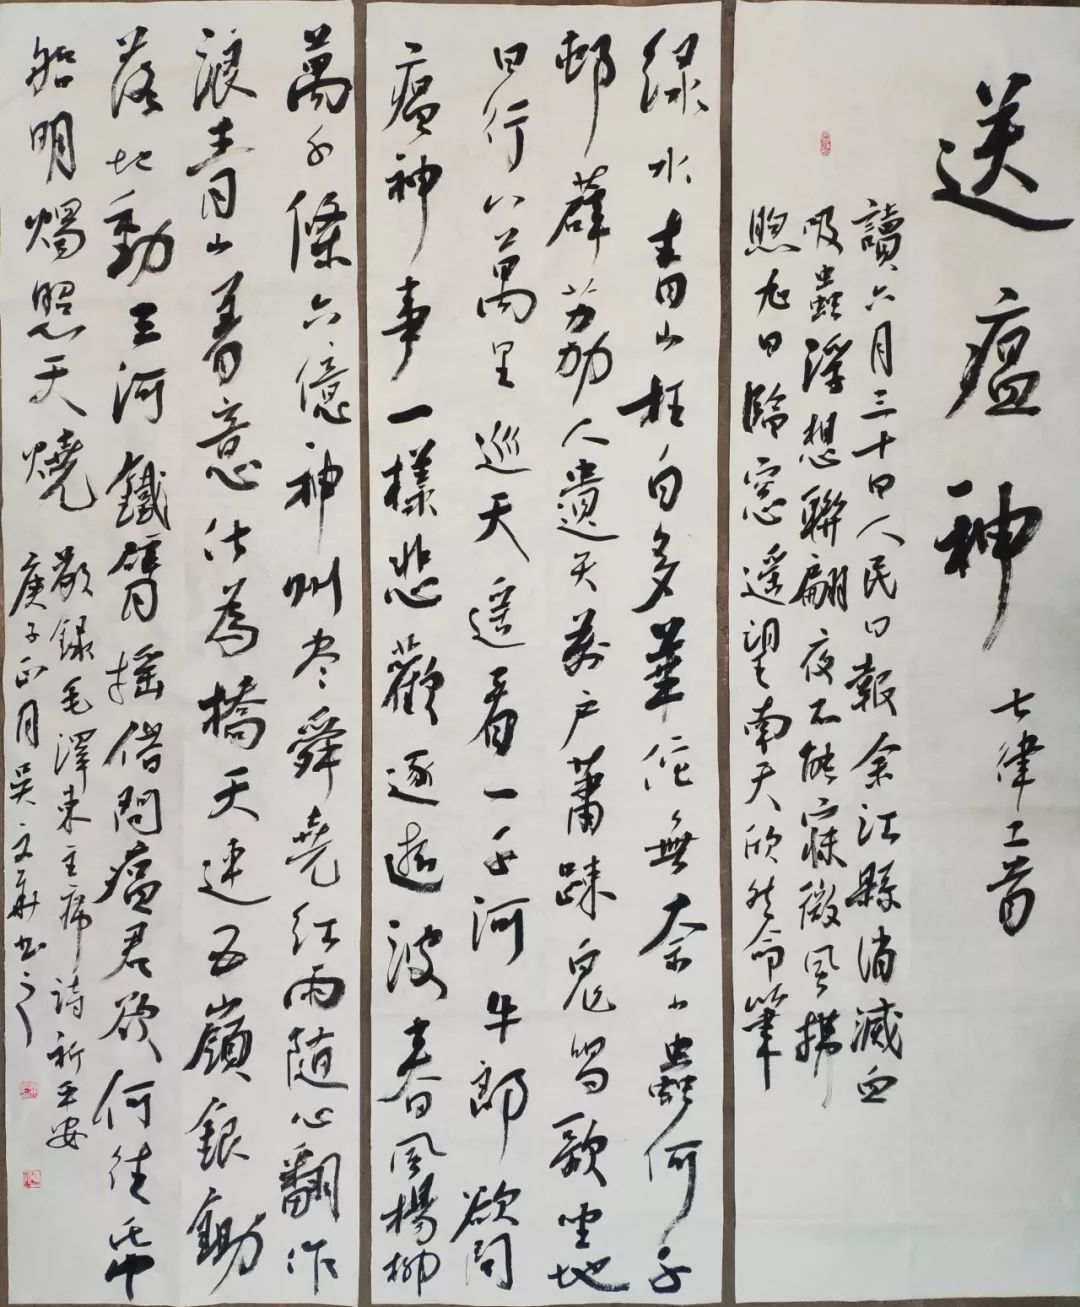 送瘟神
七律二首
讀六月三十日人民日報余江縣消滅血
吸蟲浮想聯翩夜不能寐微風拂
煦旭日臨窓遥望南天欣然命筆
緑水青山枉自多華佗無奈小蟲何千
邨薜荔人遺矢萬户蕭踈鬼唱歌坐地
日行八萬里巡天遥看一千河牛郎欲問
瘟神事一様悲歡逐逝波春風楊柳
萬千條六億神州尽舜堯紅雨随心翻作
浪青山着意化為橋天連五嶺銀鋤
落地動三河鐵臂摇借問瘟君欲何往帋
船明燭照天燒
敬録毛澤東主席詩祈平安
庚子正月吴文華书之